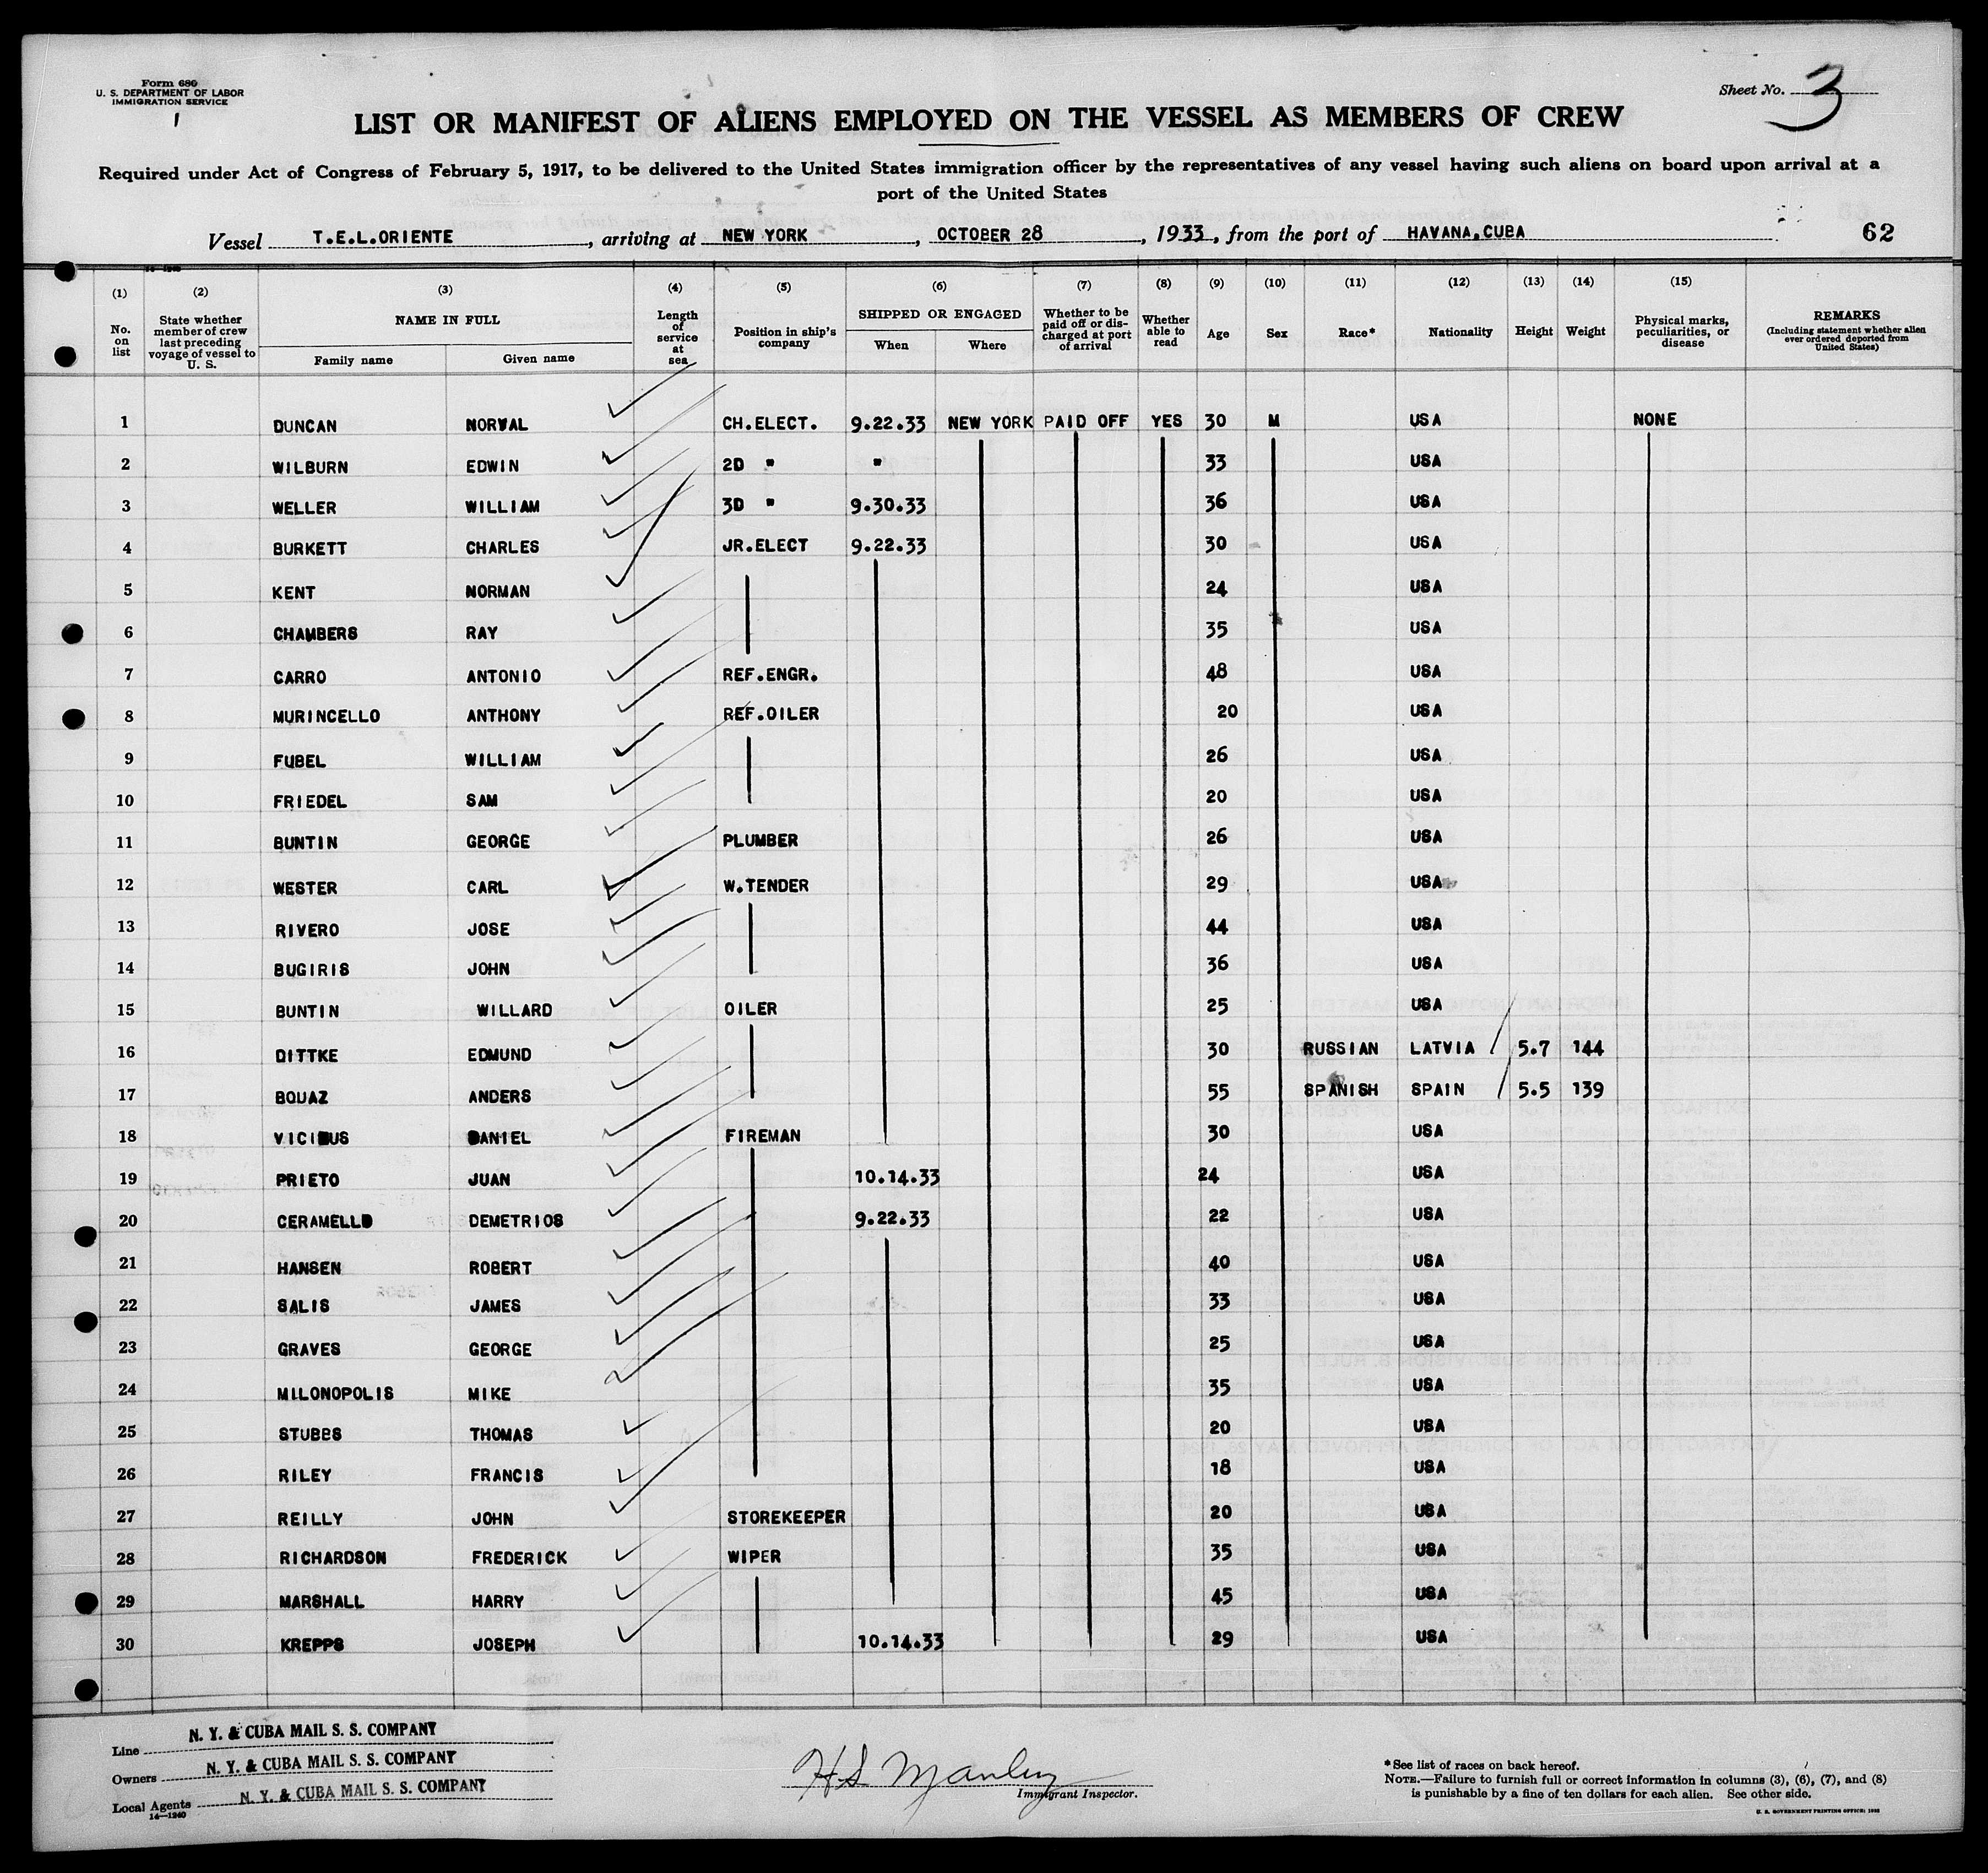 Form 680
U. S. DEPARTMENT OF LABOR
IMMIGRATION SERVICE
Sheet No. 3
LIST OR MANIFEST OF ALIENS EMPLOYED ON THE VESSEL AS MEMBERS OF CREW
Required under Act of Congress of February 5, 1917, to be delivered to the United States immigration officer by the representatives of any vessel having such aliens on board upon arrival at a
port of the United States
Vessel T.E.L.ORIENTE, arriving at NEW YORK, OCTOBER 28, 1933, from the port of HAVANA,CUBA 62
(1) No. on list
(2) State whether member of crew last preceding voyage of vessel to U. S.
(3) NAME IN FULL Family name Given name
(4) Length of service at sea
(5) Position in ship's company
(6) SHIPPED OR ENGAGED When Where
(7) Whether to be paid off or discharged at port of arrival
(8) Whether able to read
(9) Age
(10) Sex
(11) Race*
(12) Nationality
(13) Height
(14) Weight
(15) Physical marks, peculiarities, or disease
REMARKS (Including statement whether alien ever ordered deported from United States)
1 DUNCAN NORVAL CH.ELECT. 9.22.33 NEW YORK PAID OFF YES 30 M USA NONE
2 WILBURN EDWIN 2D " " 33 USA
3 WELLER WILLIAM 3D " 9.30.33 36 USA
4 BURKETT CHARLES JR.ELECT 9.22.33 30 USA
5 KENT NORMAN 24 USA
6 CHAMBERS RAY 35 USA
7 CARRO ANTONIO REF.ENGR. 48 USA
8 MURINCELLO ANTHONY REF.OILER 20 USA
9 FUBEL WILLIAM 26 USA
10 FRIEDEL SAM 20 USA
11 BUNTIN GEORGE PLUMBER 26 USA
12 WESTER CARL W.TENDER 29 USA
13 RIVERO JOSE 44 USA
14 BUGIRIS JOHN 36 USA
15 BUNTIN WILLARD OILER 25 USA
16 DITTKE EDMUND 30 RUSSIAN LATVIA 5.7 144
17 BOUAZ ANDERS 55 SPANISH SPAIN 5.5 139
18 DANIEL FIREMAN 30 USA
19 PRIETO JUAN 10.14.33 24 USA
20 CERAMELLO DEMETRIOS 9.22.33 22 USA
21 HANSEN ROBERT 40 USA
22 SALIS JAMES 33 USA
23 GRAVES GEORGE 25 USA
24 MILONOPOLIS MIKE 35 USA
25 STUBBS THOMAS 20 USA
26 RILEY FRANCIS 18 USA
27 REILLY JOHN STOREKEEPER 20 USA
28 RICHARDSON FREDERICK WIPER 35 USA
29 MARSHALL HARRY 45 USA
30 KREPPS JOSEPH 10.14.33 29 USA
Line N. Y. & CUBA MAIL S. S. COMPANY
Owners N. Y. & CUBA MAIL S. S. COMPANY
Local Agents N. Y. & CUBA MAIL S. S. COMPANY
14—1240
H S Manley
Immigrant Inspector.
*See list of races on back hereof.
NOTE.—Failure to furnish full or correct information in columns (3), (6), (7), and (8)
is punishable by a fine of ten dollars for each alien. See other side.